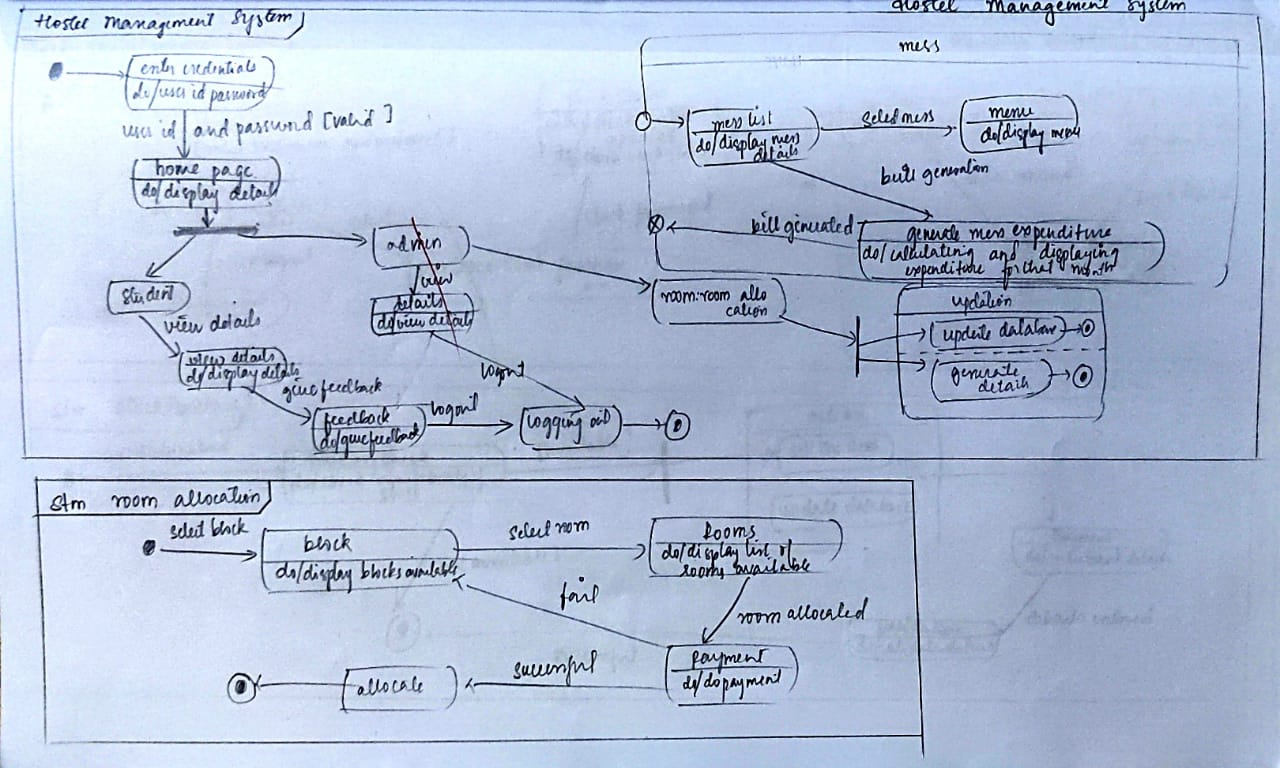 Hostel Management System
Hostel Management System
enter credentials
do/user id password
user id and password [valid]
home page
do/display details
student
view details
view details
do/display details
give feedback
feedback
do/give feedback
logout
admin
view
details
do/view details
logout
logging out
mess
mess list
do/display mess
details
Select mess
menu
do/display menu
bill generation
bill generated
generate mess expenditure
do/calculating and displaying
expenditure for that month
room:room allo
cation
updation
update database
generate
details
Stm room allocation
select block
block
do/display blocks available
select room
Rooms
do/display list of
rooms available
fail
room allocated
payment
do/do payment
successful
allocate